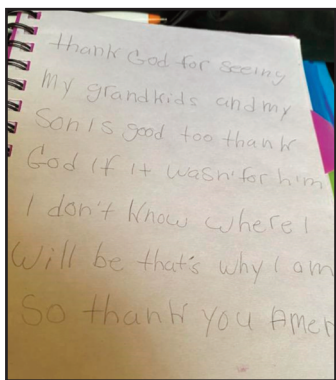 thank God for seeing
my grandkids and my
Son is good too thank
God if it wasn't for him
I don't know where I
Will be that's why I am
So thank you Amen